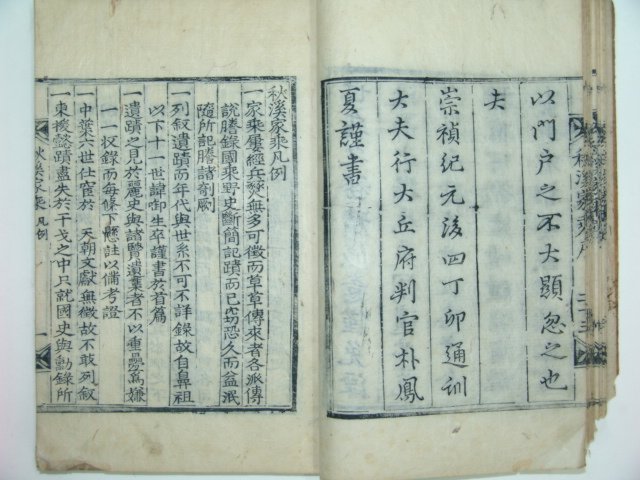 以門户之不大顯忽之也
夫
崇禎紀元後四丁卯通訓
大夫行大丘府判官朴鳳
夏謹書
秋溪家乘凡例
一家乘屢經兵燹無多可徵而草草傳來者各派傳
說謄錄國乘野史斷簡記蹟而已窃恐久而益泯
隨所記謄諸剞劂
一列叙遺蹟而年代與世系不可不詳錄故自鼻祖
以下十一世諱御生卒謹書於首篇
一遺蹟之見於麗史與諸賢遺集者不以重疊爲嫌
一一收錄而每條下懸註以備考證
一中葉六世仕宦於 天朝文獻無徵故不敢列叙
一東後懿蹟盡失於干戈之中只就國史與勳錄所
秋溪家乘凡例
一